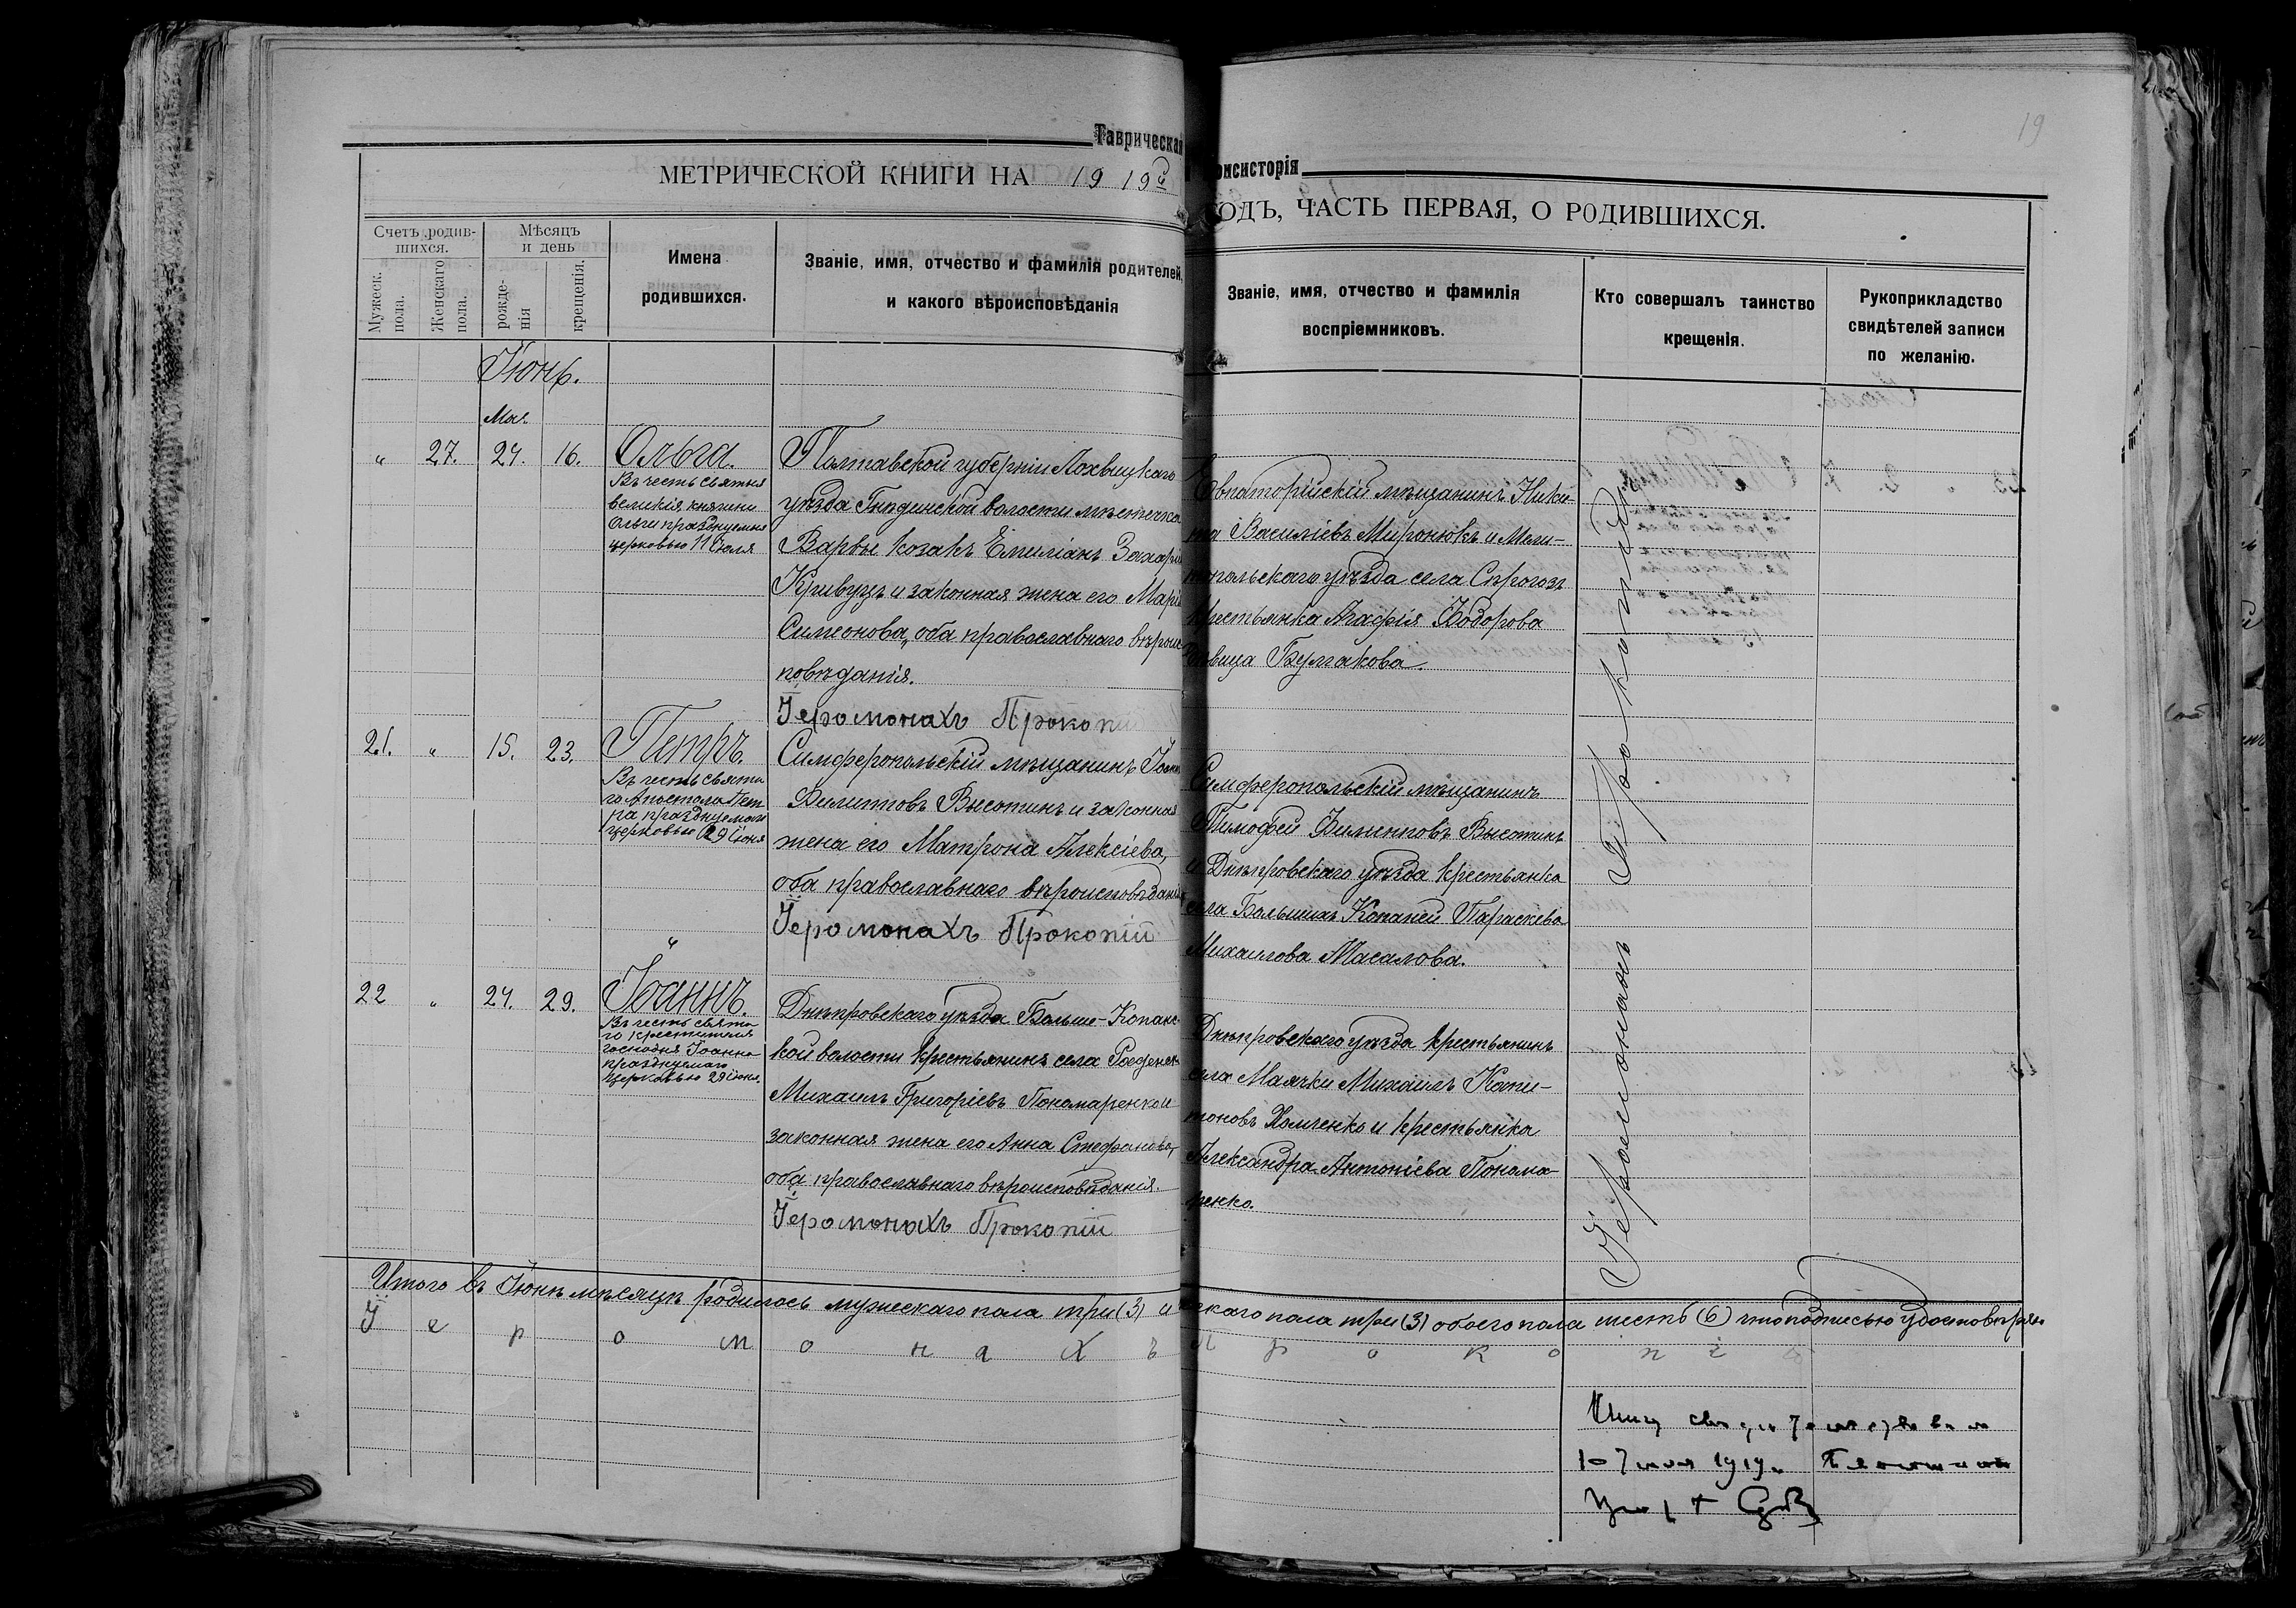 19
Таврическая
онсисторія
МЕТРИЧЕСКОЙ КНИГИ НА 1919й
ОДЪ, ЧАСТЬ ПЕРВАЯ, О РОДИВШИХСЯ.
Счетъ родив-
шихся.
Мужеск.
пола.
Женскаго
пола.
Мѣсяцъ
и день
рожде-
нія
крещенія.
Имена
родившихся.
Званіе, имя, отчество и фамилія родителей,
и какого вѣроисповѣданія
Званіе, имя, отчество и фамилія
воспріемниковъ.
Кто совершалъ таинство
крещенія.
Рукоприкладство
свидѣтелей записи
по желанію.
Іюнь.
Мая
„ 27. 24. 16. Ольга.
Въ честь святыя
великія княгини
Ольги празднуемыя
церковью 11 Іюля
Полтавской губерніи Лохвицкаго
уѣзда волости мѣстечка
Варвы козакъ Емиліанъ Захарі
Кривуцъ и законная жена его Марі
Симеонова, оба православнаго вѣроис
повѣданія.
Іеромонахъ Прокопій
Евпаторійскій мѣщанинъ Ники-
та Василіевъ Миронюкъ и Мели-
топольскаго уѣзда села Сірогозъ
крестьянка Агафія Ѳодорова
дѣвица Булгакова.
21. „ 15. 23. Петръ.
Въ честь свята
го Апостола Пет
ра празднуемаго
церковью 29 Іюня
Симферопольскій мѣщанинъ Іоанн
Филипповъ Высотинъ и законная
жена его Матрона Алексіева,
оба православнаго вѣроисповѣдані
Іеромонахъ Прокопій
Симферопольскій мѣщанинъ
Тимофей Филипповъ Высотинъ
и Днѣпровскаго уѣзда крестьянка
села Большихъ Копаней Параскева
Михаилова Масалова.
„
22 „ 24. 29. Іоаннъ.
Въ честь свята
го Крестителя
Господня Іоанна
празднуемаго
церковью 29 Іюня.
Днѣпровскаго уѣзда Больше-Копанс
кой волости крестьянинъ села
Михаилъ Григоріевъ Пономаренко и
законная жена его Анна Стефанова,
оба православнаго вѣроисповѣданія.
Іеромонахъ Прокопій
Днѣпровскаго уѣзда крестьянинъ
села Маячки Михаилъ Капи-
тоновъ Хомченко и крестьянка
Александра Антоніева Понома-
ренко.
Іеромонахъ Прокопій
Итого въ Іюнѣ мѣсяцѣ родилось мужескаго пола три (3) и женскаго пола три (3) обоего пола шесть (6) что подписью удостовѣряю
Іеромонахъ Прокопій
1919